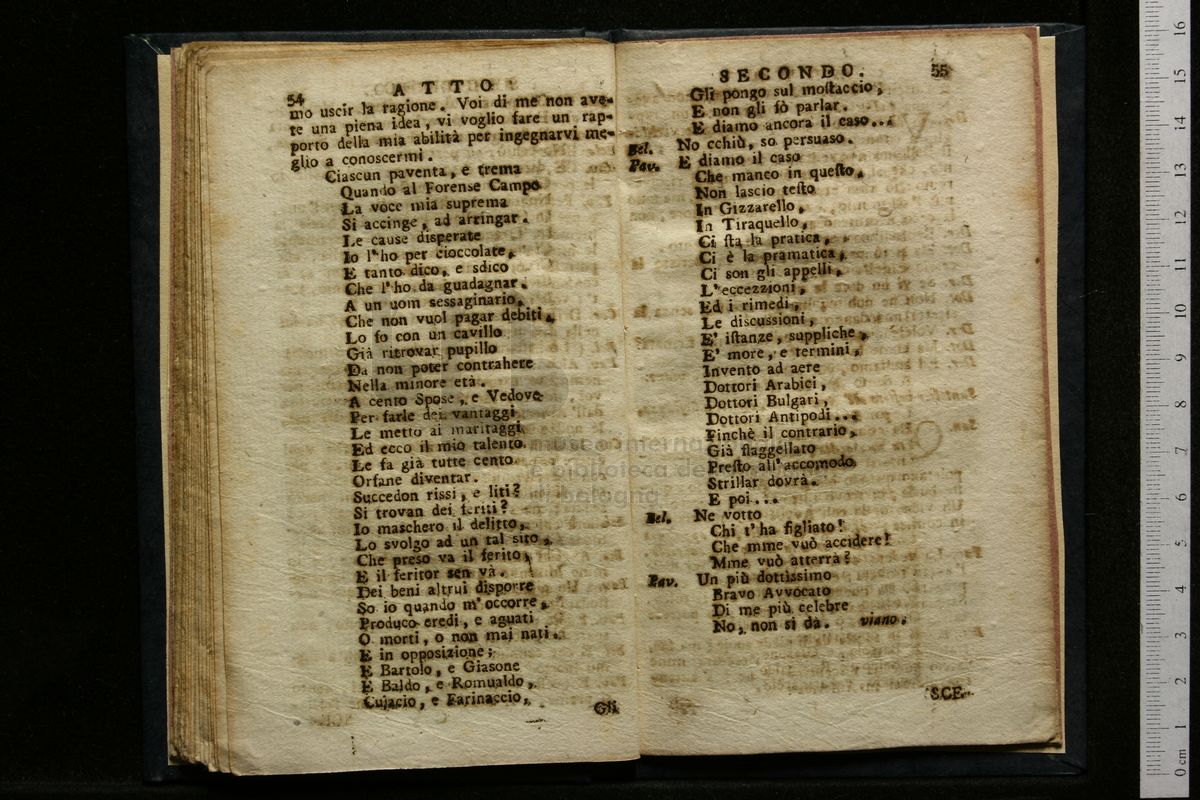 54 ATTO
mo uscir la ragione. Voi di me non ave-
te una piena idea, vi voglio fare un rap-
porto della mia abilità per ingegnarvi me-
glio a conoscermi.
Ciascun paventa, e trema
Quando al Forense Campo
La voce mia suprema
Si accinge, ad arringar.
Le cause disperate
Io l'ho per cioccolate,
E tanto dico, e sdico
Che l'ho da guadagnar.
A un uom sessaginario,
Che non vuol pagar debiti,
Lo fo con un cavillo
Già ritrovar pupillo
Da non poter contrahere
Nella minore età.
A cento Spose, e Vedove
Per farle dei vantaggi
Le metto ai maritaggi
Ed ecco il mio talento
Le fa già tutte cento
Orfane diventar.
Succedon rissi, e liti?
Si trovan dei feriti?
Io maschero il delitto,
Lo svolgo ad un tal sito,
Che preso va il ferito,
E il feritor sen và.
Dei beni altrui disporre
So io quando m'occorre,
Produco eredi, e aguati
O morti, o non mai nati.
E in opposizione;
E Bartolo, e Giasone
E Baldo, e Romualdo,
Cujacio, e Farinaccio,
Gli
SECONDO. 55
Gli pongo sul moſtaccio,
E non gli fò parlar.
E diamo ancora il caso...
Bel. No cchiù, so persuaso.
Pav. E diamo il caso
Che manco in queſto,
Non lascio teſto
In Gizzarello,
In Tiraquello,
Ci ſta la pratica,
Ci è la pramatica,
Ci son gli appelli,
L'eccezzioni,
Ed i rimedi,
Le discussioni,
E' iſtanze, suppliche,
E' more, e termini,
Invento ad aere
Dottori Arabici,
Dottori Bulgari,
Dottori Antipodi...
Finchè il contrario,
Già flaggellato
Preſto all'accomodo
Strillar dovrà.
E poi...
Bel. Ne votto
Chi t'ha figliato!
Che mme vuò accidere!
Mme vuò atterrà?
Pav. Un più dottissimo
Bravo Avvocato
Di me più celebre
No, non si dà. viano.
SCE-